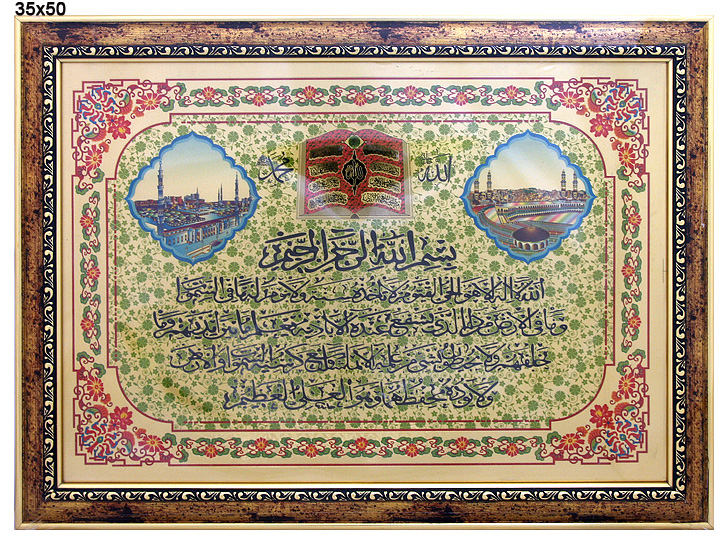 35x50
محمد الله
بسم الله الرحمن الرحيم
الله لا إله إلا هو الحي القيوم لا تأخذه سنة ولا نوم له ما في السموا
وما في الأرض من ذا الذي يشفع عنده إلا بإذنه يعلم ما بين أيديهم وما
خلفهم ولا يحيطون بشيء من علمه إلا بما شاء وسع كرسيه السموات والأرض
ولا يؤده حفظهما وهو العلي العظيم